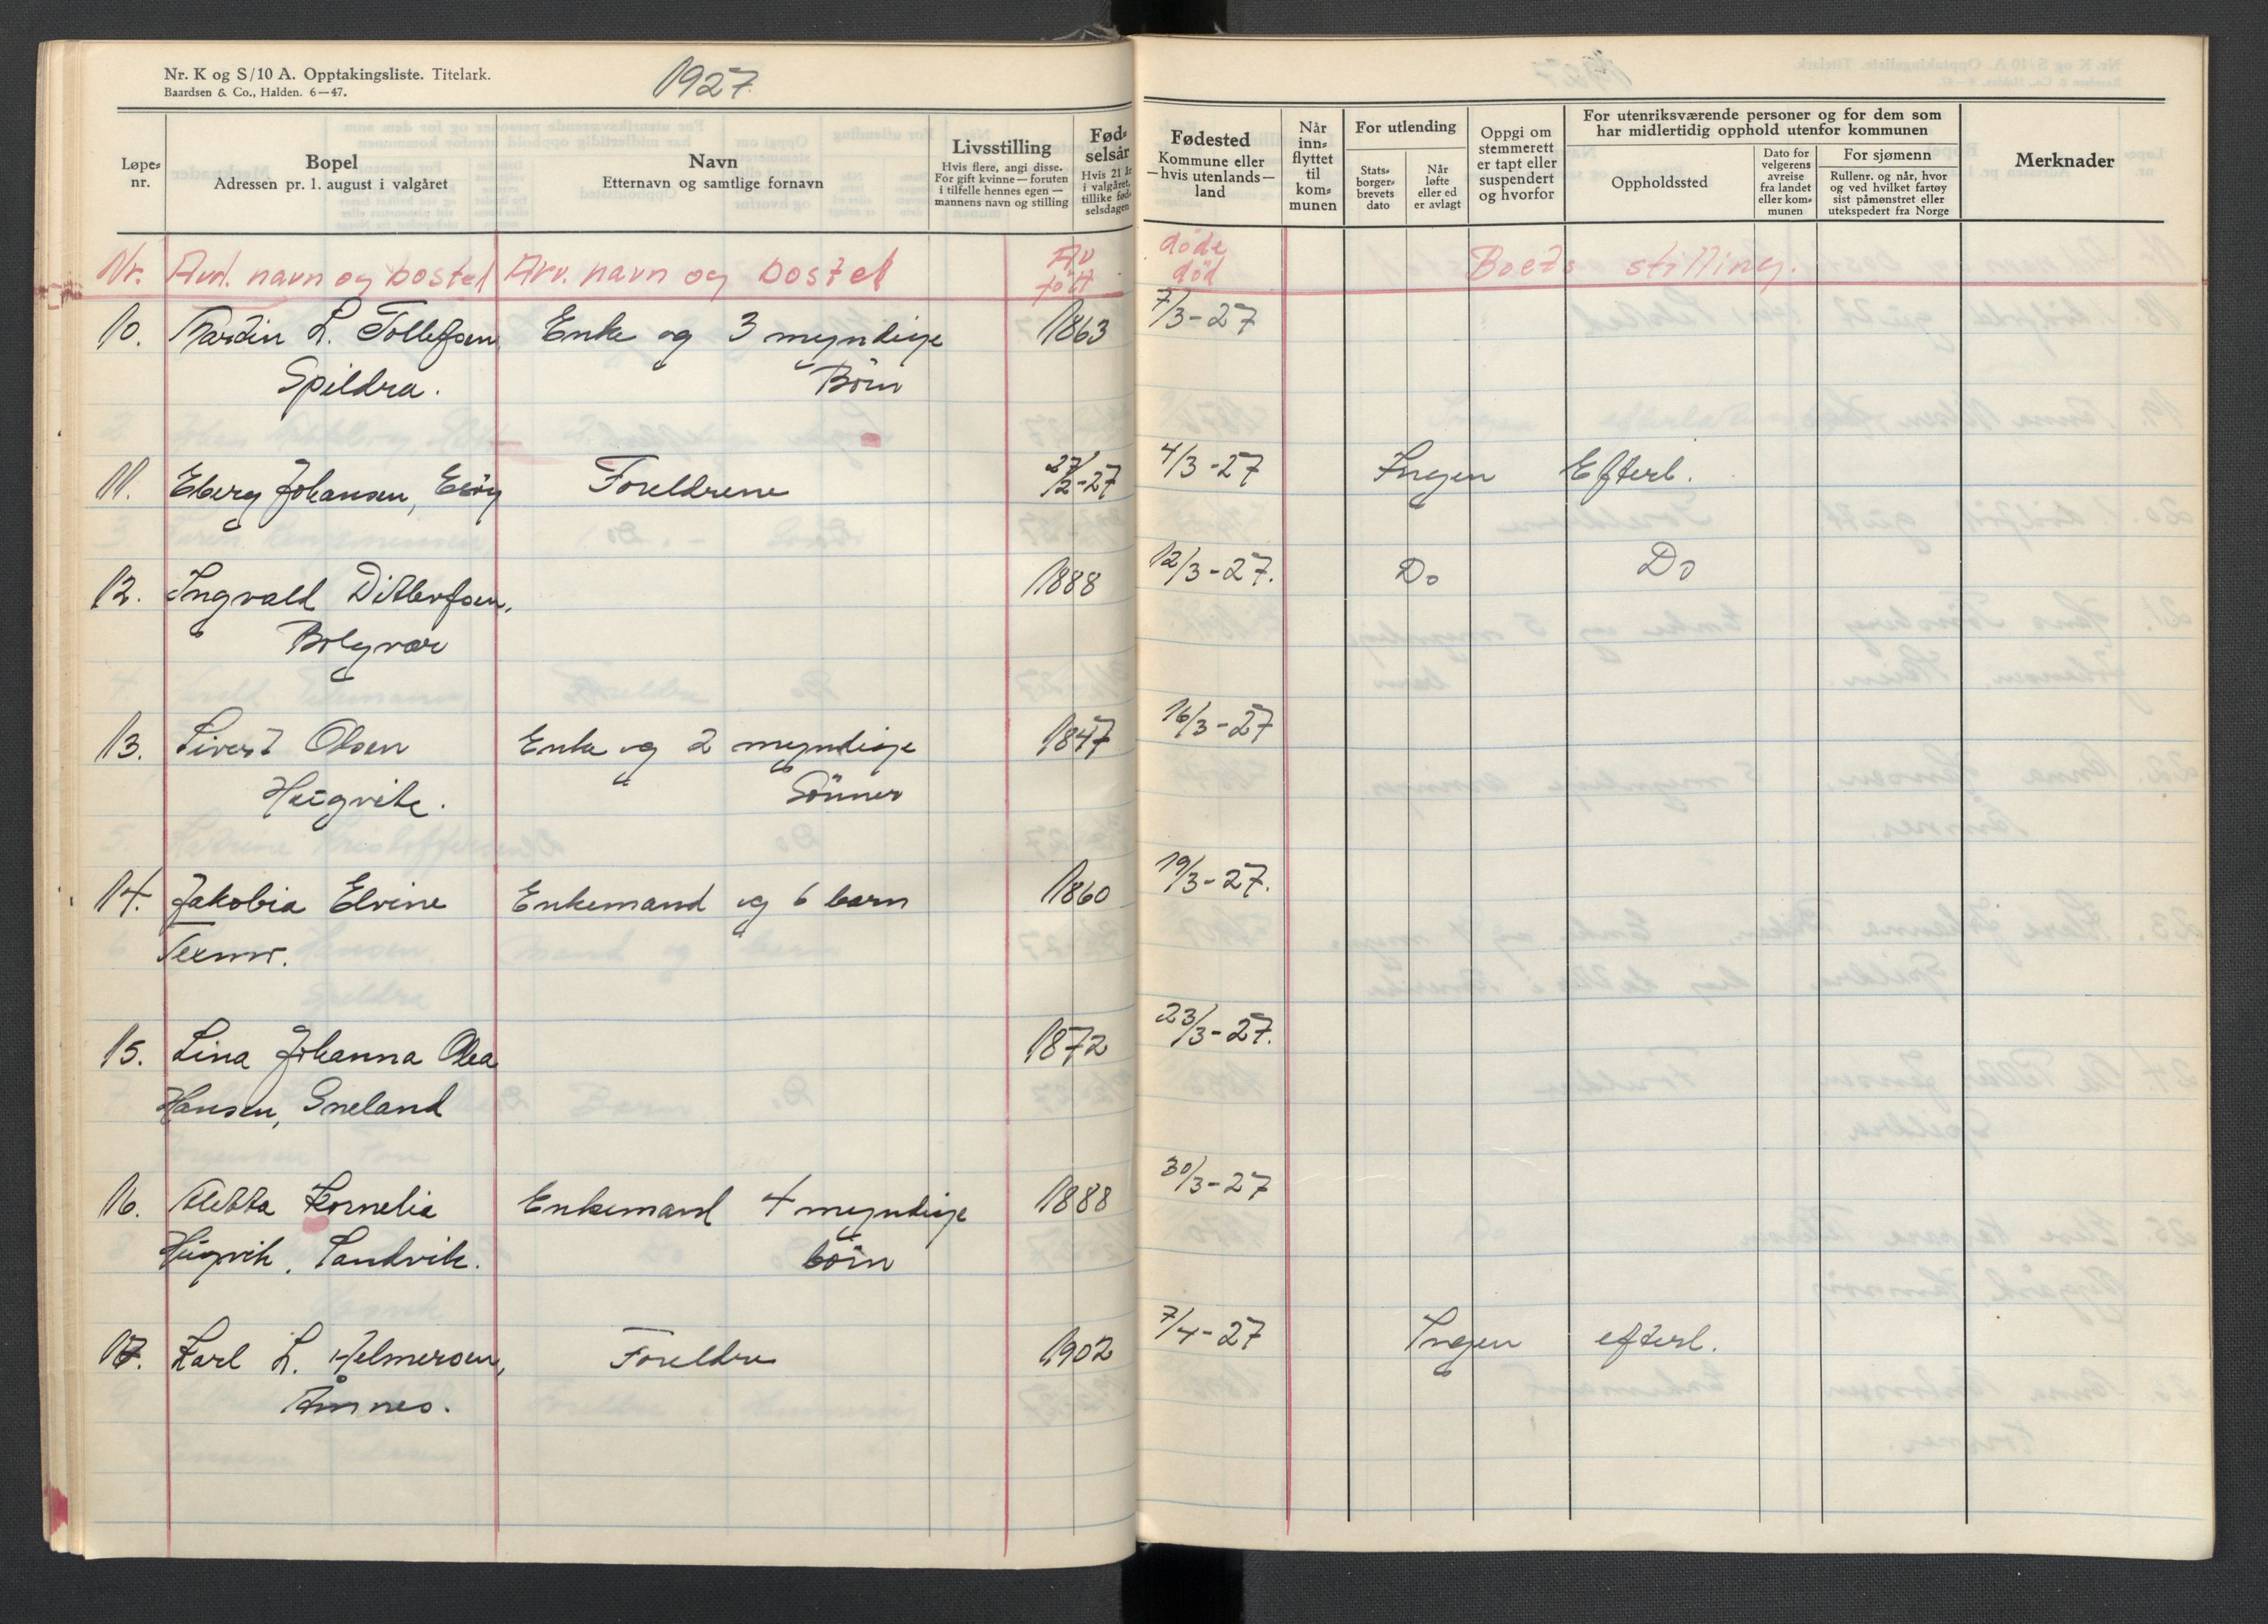 Nr. K og S/10 A. Opptakingsliste. Titelark.
Baardsen & Co., Halden. 6—47.
1927
Løpe-nr.
Bopel
Adressen pr. 1. august i valgåret
Navn
Etternavn og samtlige fornavn
Livsstilling
Hvis flere, angi disse.
For gift kvinne — foruten
i tilfelle hennes egen —
mannens navn og stilling
Fød-
selsår
Hvis 21 år
i valgåret,
tillike fød-
selsdagen
Fødested
Kommune eller
— hvis utenlands —
land
Når
inn-
flyttet
til
kom-
munen
For utlending
Stats-
borger-
brevets
dato
Når
løfte
eller ed
er avlagt
Oppgi om
stemmerett
er tapt eller
suspendert
og hvorfor
For utenriksværende personer og for dem som
har midlertidig opphold utenfor kommunen
Oppholdssted
Dato for
velgerens
avreise
fra landet
eller kom-
munen
For sjømenn
Rullenr. og når, hvor
og ved hvilket fartøy
sist påmønstret eller
utekspedert fra Norge
Merknader
Nr. Avd. navn og bosted Arv. navn og bosted Av døde
født død Boets stilling.
10. Martin L. Tollefsen Enke og 3 myndige 1863 7/3-27
Spildra. Børn
11. Eberg Johansen, Esøy Foreldrene 27/2-27 4/3-27 Ingen Efterl.
12. Ingvald Ditlevsen, 1888 12/3-27. Do Do
Bolgvær
13. Sivert Olsen Enke og 2 myndige 1847 16/3-27
Heigvik. Sønner
14. Jakobia Elvine Enkemand og 6 barn 1860 19/3-27.
15. Lina Johanna Olea 1872 23/3-27.
Hansen, Gneland
16. Aletta Kornelia Enkemand 4 myndige 1888 30/3-27
Hügvik, Sandvik. børn
17. Karl L. Helmersen, Foreldre 1902 7/4-27 Ingen efterl.
Åmnes.